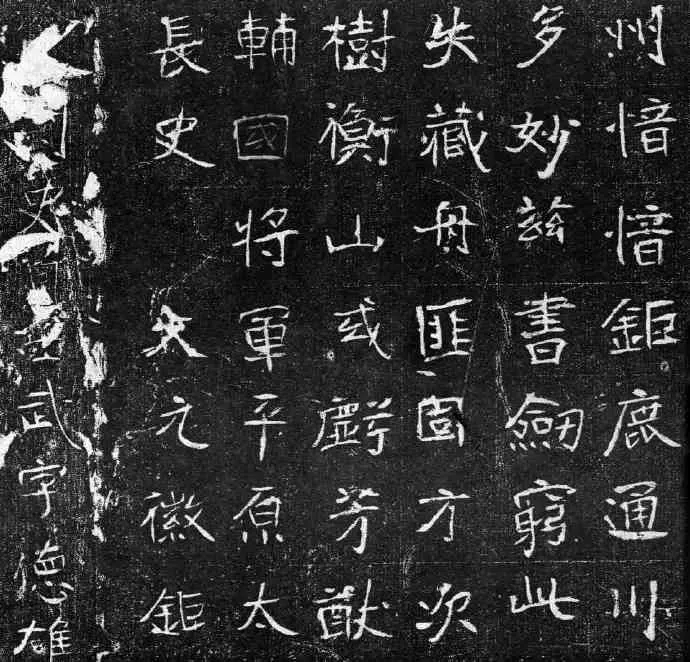 州愔愔鉅鹿通川
多妙茲書劒窮此
失藏舟匪固方次
樹衡山或虧芳猷
輔國將軍平原太
長史　夫元徽鉅
武字德雄